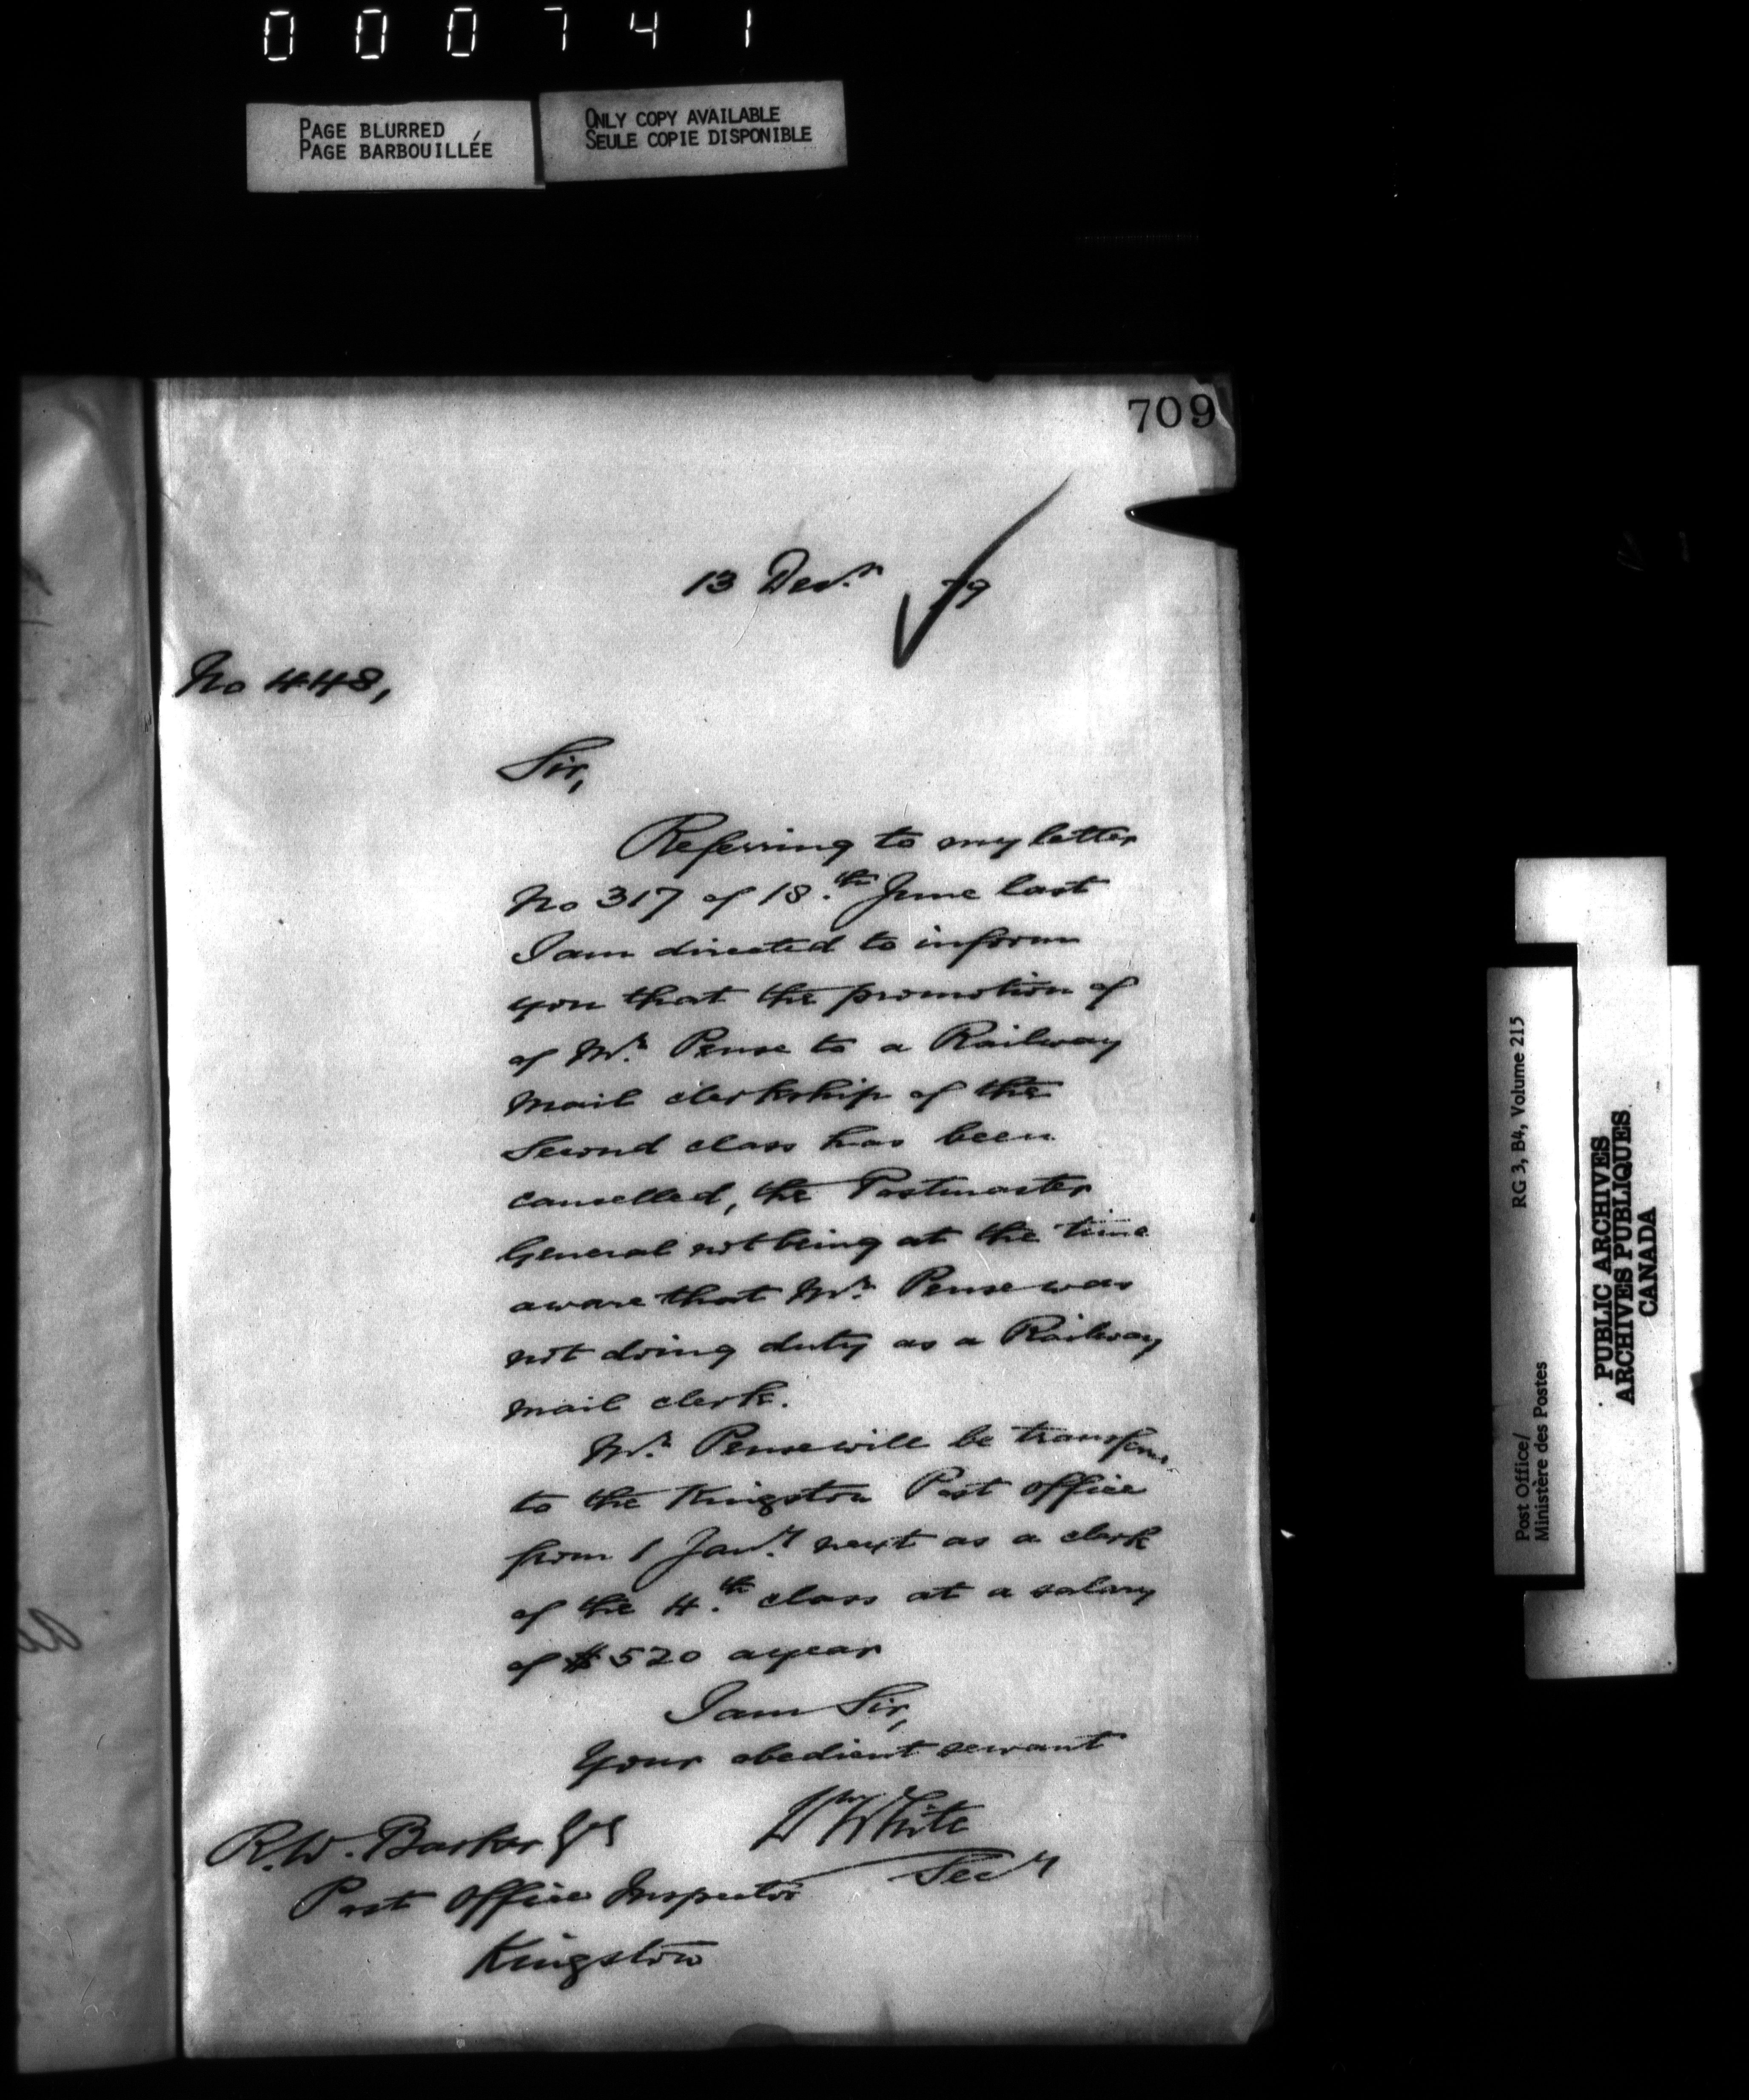 000741
PAGE BLURRED
PAGE BARBOUILLÉE
ONLY COPY AVAILABLE
SEULE COPIE DISPONIBLE
709
13 Decr 79
No 448,
Sir,
Referring to my letter
No 317 of 18.th June last
I am directed to inform
you that the promotion of
of Mr. Pense to a Railway
Mail clerkship of the
Second class has been
cancelled, the Postmaster
General not being at the time
aware that Mr. Pense was
not doing duty as a Railway
Mail clerk.
Mr. Pense will be
to the Kingston Post Office
from 1 Jany next as a clerk
of the 4.th class at a salary
of $520 a year
I am Sir,
Your obedient servant
Wm White
Secy
R.W. Barker Esq
Post Office Inspector
Kingston
Post Office/
Ministère des Postes
RG 3, B4, Volume 215
PUBLIC ARCHIVES
ARCHIVES PUBLIQUES
CANADA